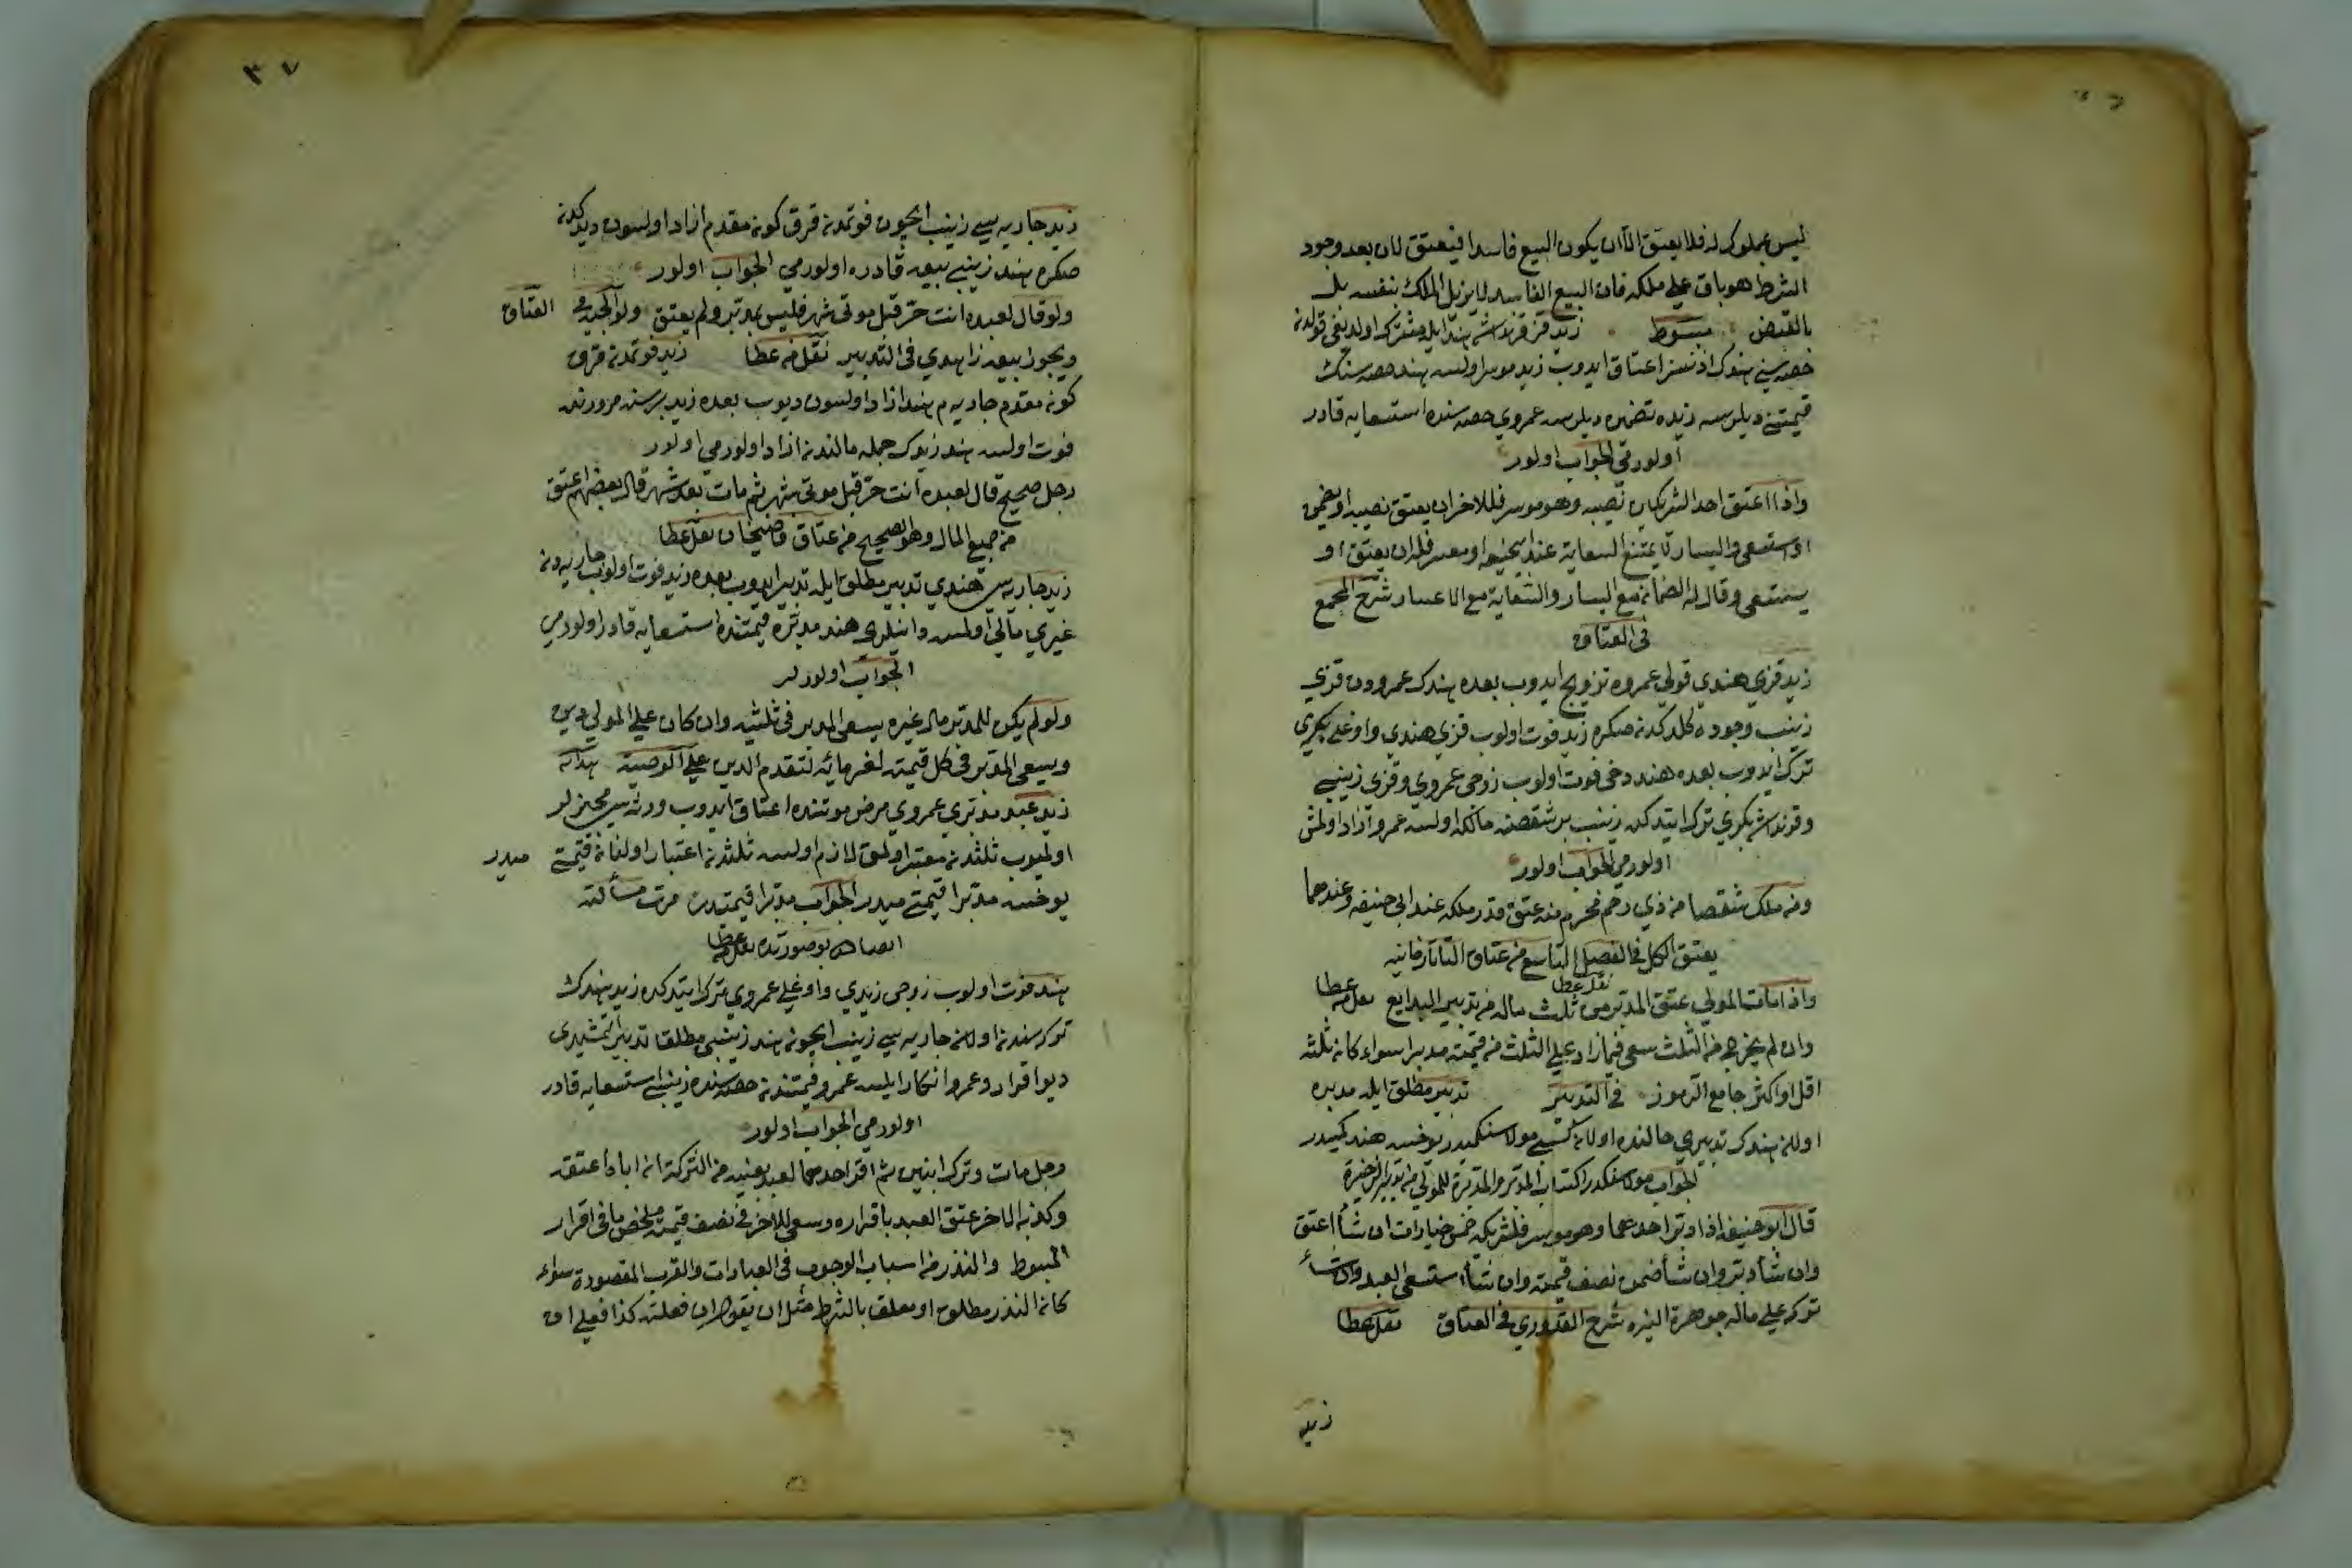 ليس بمملوك له فلا يعتق الا ان يكون البيع فاسدا فيعتق لان بعد وجود
الشرط هو باق على ملكه فان البيع الفاسد لا يزيل الملك بنفسه بل
بالقبض مبسوط زيد قز قرنداشى هند ايله مشترك اولديغى قولدن
حصه سنى هندك اذنسز اعتاق ايدوب زيد موسر اولسه هند حصه سنك
قيمتنى ديلرسه زيده تضمين ديلرسه عمروى حصه سنده استسعايه قادر
اولورمى الجواب اولور
واذا اعتق احد الشريكين نصيبه وهو موسر فللاخر ان يعتق نصيبه او يضمن
او استسعى واليسار لا يمنع السعاية عند ابيحنيفه او معسر فله ان يعتق او
يستسعى وقالا له الضمان مع اليسار والسعاية مع الاعسار شرح المجمع
فى العتاق
زيد قزى هندى قولى عمروه تزويج ايدوب بعده هندك عمرودن قزى
زينب وجوده كلدكدن صكره زيد فوت اولوب قزى هندى واوغلى بكرى
ترك ايدوب بعده هند دخى فوت اولوب زوجى عمروى وقزى زينبى
وقرنداشى بكرى ترك ايتدكده زينب بر شقصنه مالكه اولسه عمرو آزاد اولمش
اولورمى الجواب اولور
ومن ملك شقصا من ذى رحم محرم منه عتق قدر ملكه عند ابى حنيفه وعندهما
يعتق الكل فى الفصل التاسع من عتاق التاتارخانيه
نقل عطا
واذا مات المولى عتق المدبر من ثلث ماله من تدبير البدايع نقل من عطا
وان لم يخرج من الثلث سعى فيما زاد على الثلث من قيمته مدبرا سواء كانه ثلثه
اقل او اكثر جامع الرموز فى التدبير تدبير مطلق ايله مدبره
اولان هندك تدبيرى حالنده اولان كسبى مولاسنكميدر يوخسه هندكميدر
الجواب مولاسنكدر اكتساب المدبر والمدبرة للمولى من تدبير الذخيرة
قال ابو حنيفه اذا دبر احدهما وهو موسر فلشريكه خمس خيارات ان شأ اعتق
وان شأ دبر وان شأ ضمن نصف قيمته وان شأ استسعى العبد وان شأ
تركه على حاله جوهرة النيره شرح القدورى فى العتاق نقل عطا
زيد
٣٧
زيد جاريه سى زينب ايچون فوتمدن قرق كون مقدم ازاد اولسون ديدكدن
صكره هند زينبى بيعه قادره اولورمى الجواب اولور
ولو قال لعبده انت حر قبل موتى بشهر فليس بمدبر ولم يعتق العتاق
ويجوز بيعه زاهدى فى التدبير نقل من عطا زيد فوتمدن قرق
كون مقدم جاريه م هند ازاد اولسون ديوب بعده زيد بر سنه مرورنده
فوت اولسه هند زيدك جمله مالندن ازاد اولورمى اولور
رجل صحيح قال لعبده انت حر قبل موتى بشهر ثم مات بعد شهر قال بعضهم عتق
من جميع المال وهو الصحيح من عتاق قاضيخان نقل عطا
زيد جاريه سى هندى تدبير مطلق ايله تدبير ايدوب بعده زيد فوت اولوب جاريه دن
غيرى مالى اولمسه وارثلرى هند مدبره قيمتنده استسعايه قادر اولورمى
الجواب اولورلر
ولو لم يكن للمدبر مال غيره يسعى المدبر فى ثلثيه وان كان على المولى دين
ويسعى المدبر فى كل قيمته لغرمائه لتقدم الدين على الوصية هدايه
زيد عبد مدبرى عمروى مرض موتنده اعتاق ايدوب ورثه سى مجيزلر
اولميوب ثلثدن معتبر اولمق لازم اولسه ثلثدن اعتبار اولنان قيمتى ميدر
يوخسه مدبرا قيمتى ميدر الجواب مدبرا قيمتيدر مرت مسألته
هند فوت اولوب زوجى زيدى واوغلى عمروى ترك ايتدكده زيد هندك
تركه سندن اولان جاريه سى زينب ايچون هند زينبى مطلقا تدبير ايتمشيدى
ديو اقرار وعمرو انكار ايلسه عمرو قيمتندن حصه سنده زينبى استسعايه قادر
اولورمى الجواب اولور
رجل مات وترك ابنين ثم اقر احدهما لعبد بعينه من التركة ان اباه اعتقه
وكذبه الاخر عتق العبد باقراره وسعى للآخر فى نصف قيمته ملخص ما فى اقرار
المبسوط والنذر من اسباب الوجوب فى العبادات والقرب المقصودة سواء
كانه النذر مطلق او معلق بالشرط مثل ان يقول ان فعلت كذا فعلى ان